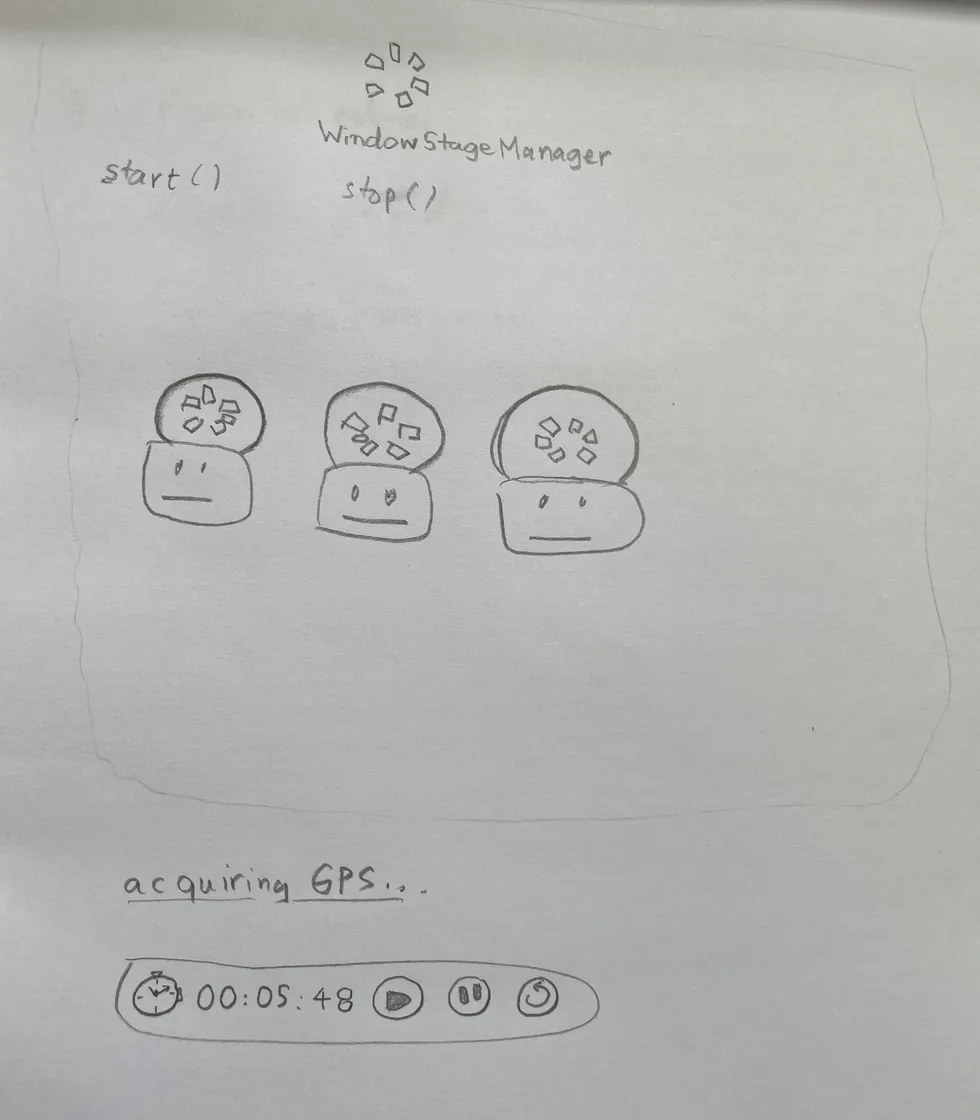 WindowStageManager
start()
stop()
acquiring GPS...
00:05:48